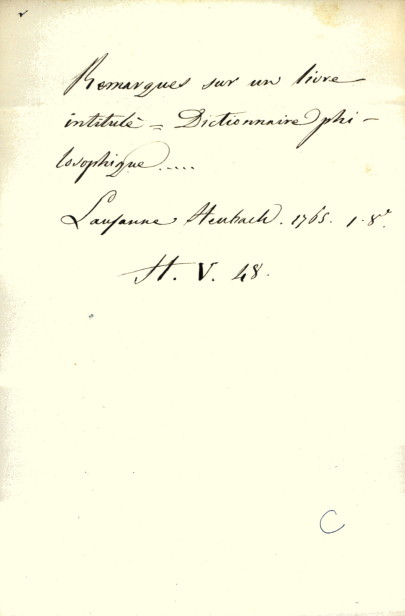 Remarques sur un livre
intitulé = Dictionnaire phi-
losophique.....
Lausanne Heubach. 1765. 1. 8°.
H. V. 48.
C